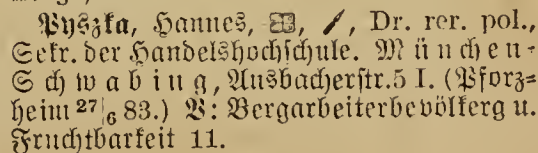 Pyszka, Hannes, Dr. rer. pol.,
Sekr. der Handelshochschule. München-
Schwabing, Ansbacherstr. 5 I. (Pforz=
heim 27/6 83.) V: Bergarbeiterbevölkerg u.
Fruchtbarkeit 11.